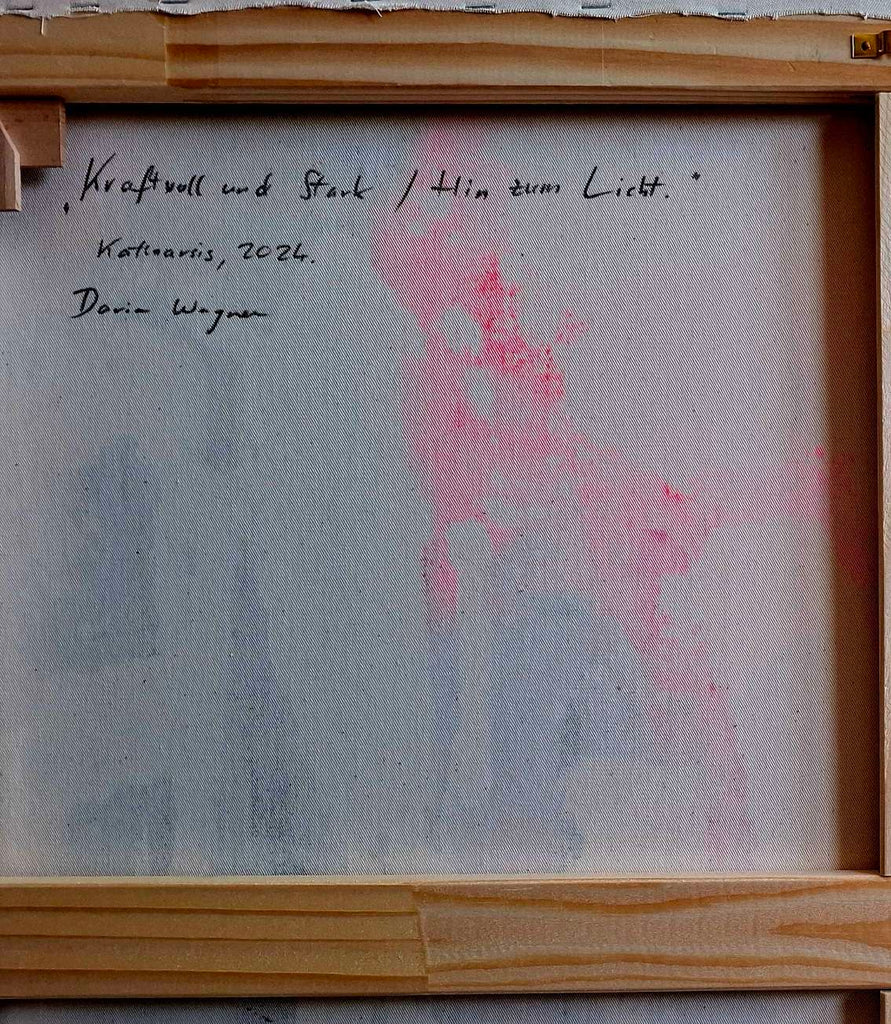 „Kraftvoll und Stark / Hin zum Licht."
Katharsis, 2024.
Darin Wagner